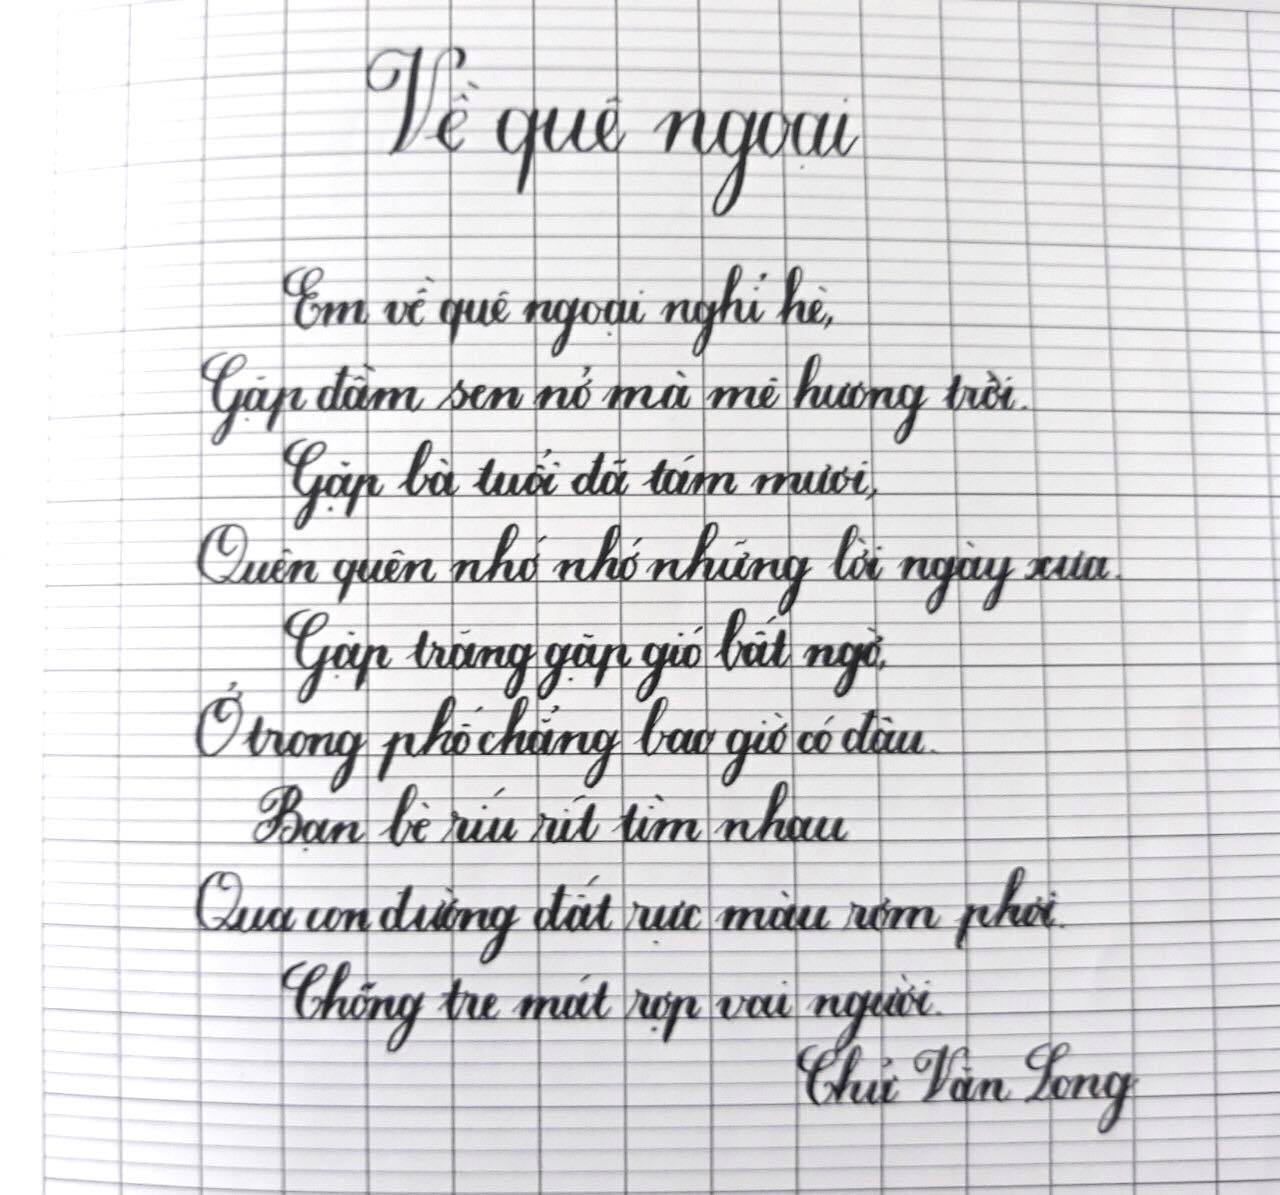 Về quê ngoại
Em về quê ngoại nghỉ hè,
Gặp đầm sen nở mà mê hương trời.
Gặp bà tuổi đã tám mươi,
Quên quên nhớ nhớ những lời ngày xưa.
Gặp trăng gặp gió bất ngờ,
Ở trong phố chẳng bao giờ có đâu.
Bạn bè ríu rít tìm nhau
Qua con đường đất rực màu rơm phơi.
Chõng tre mát rợp vai người.
Chử Văn Long